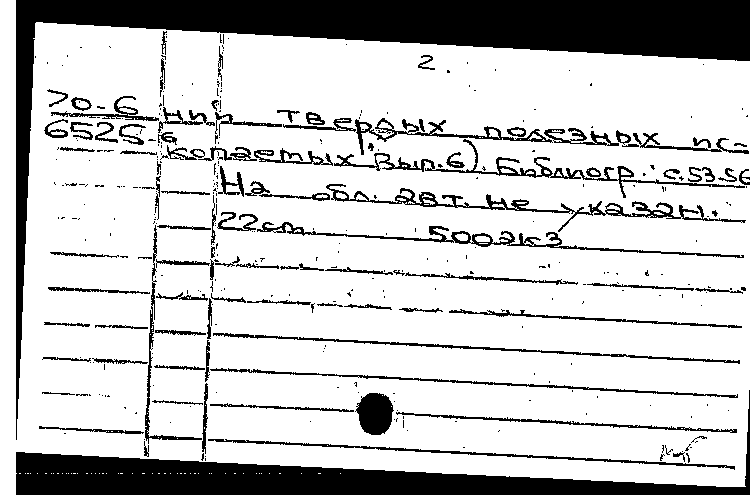 2.
70-6 ний твердых полезных ис-
6525-6 копаемых. Вып. 6). Библиогр.: с.53-56
На обл. авт. не указан.
22см. 500экз